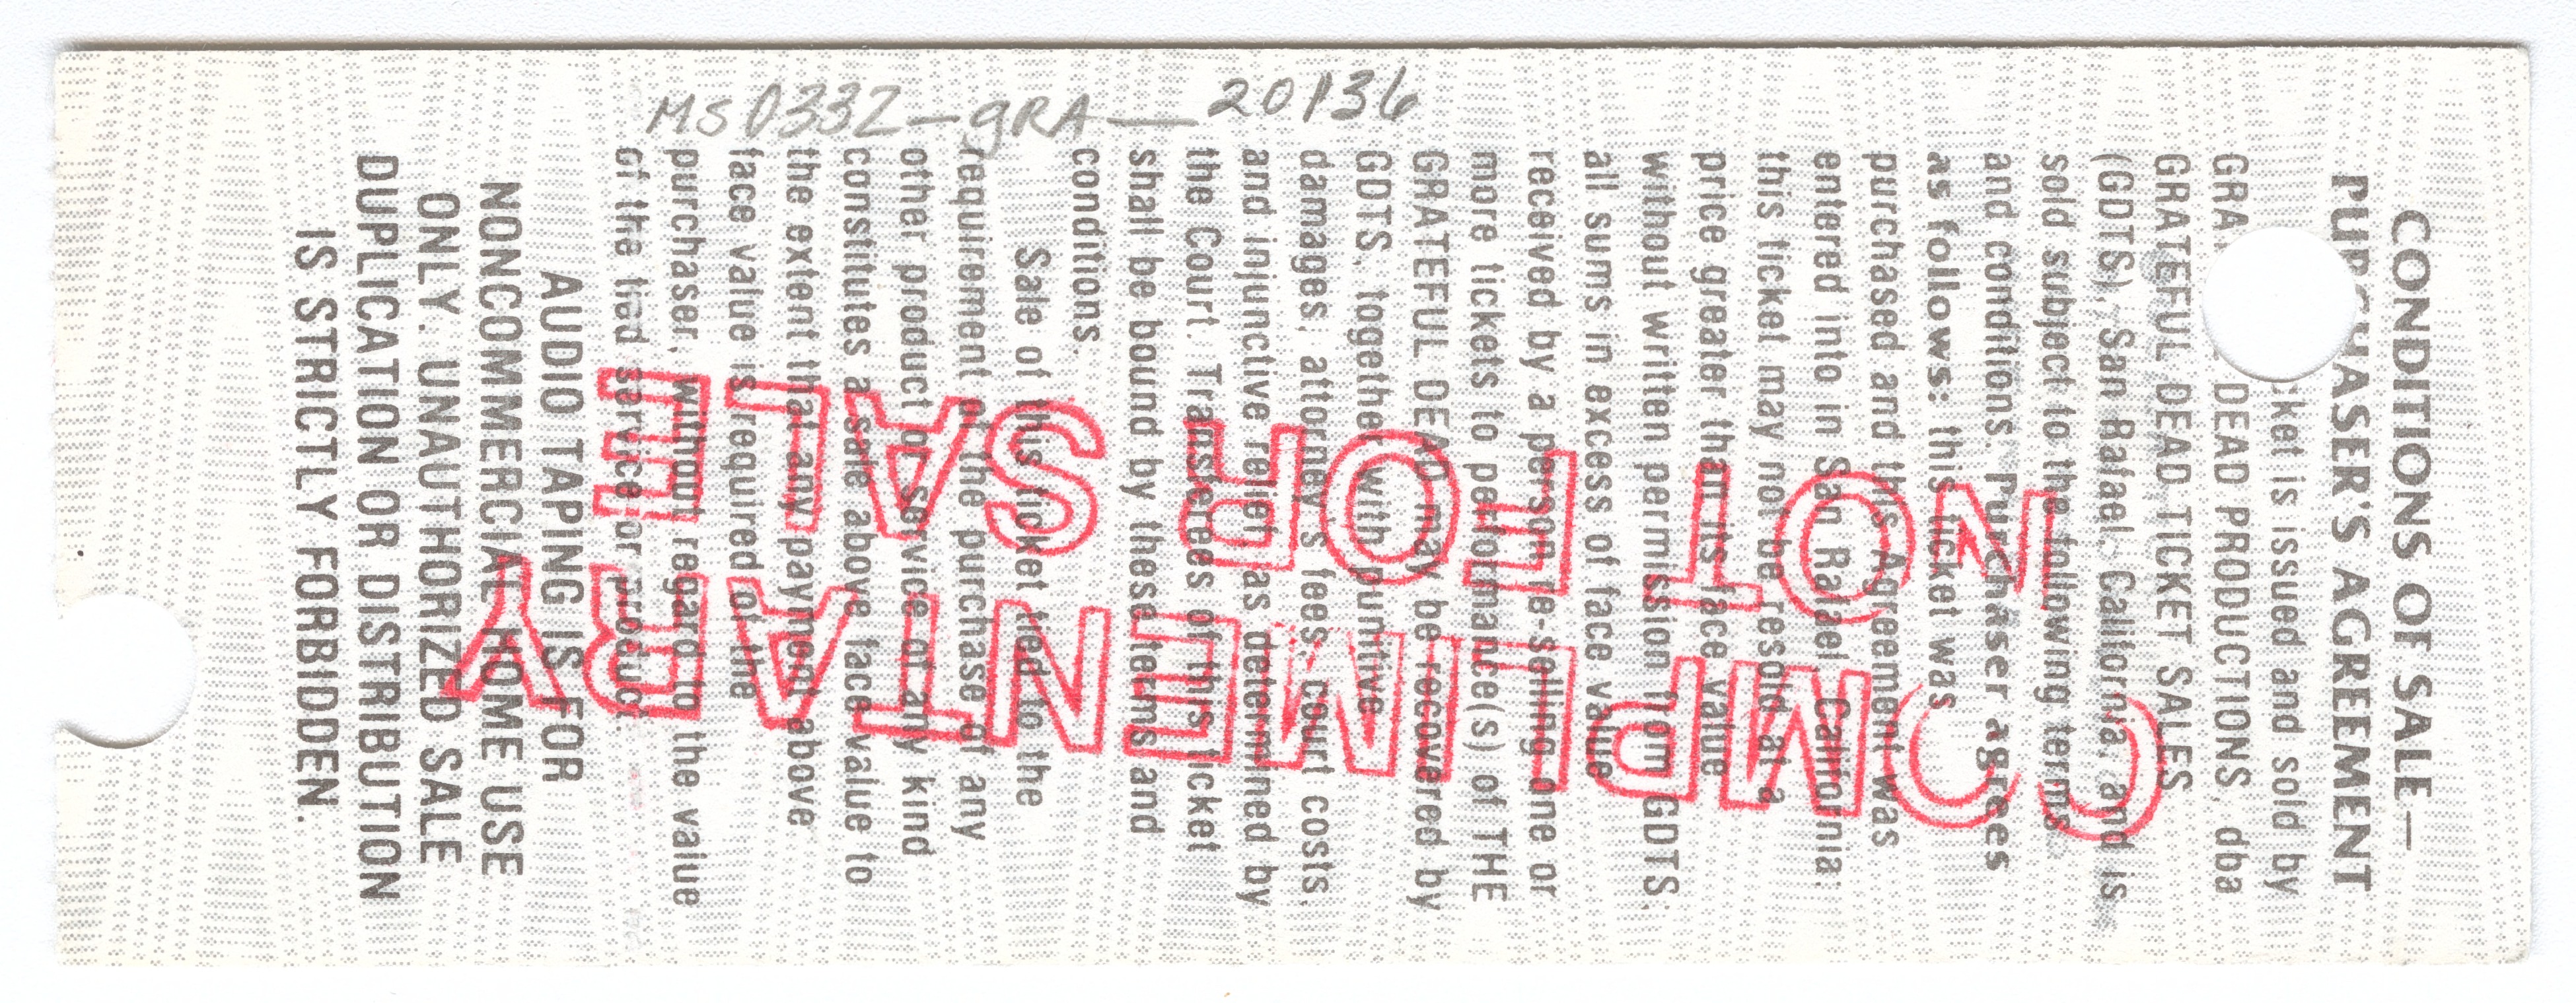 MS0332-gRA-20136
CONDITIONS OF SALE—
PURCHASER'S AGREEMENT
ket is issued and sold by
GRA DEAD PRODUCTIONS, dba
GRATEFUL DEAD TICKET SALES
(GDTS), San Rafael, California, and is
sold subject to the following terms
and conditions. Purchaser agrees
as follows: this ticket was
purchased and this Agreement was
entered into in San Rafael, California;
this ticket may not be resold at a
price greater than its face value
without written permission from GDTS.
all sums in excess of face value
received by a person re-selling one or
more tickets to performance(s) of THE
GRATEFUL DEAD may be recovered by
GDTS, together with punitive
damages, attorney's fees, court costs,
and injunctive relief as determined by
the Court. Transferees of this ticket
shall be bound by these terms and
conditions.
Sale of this ticket tied to the
requirement of the purchase of any
other product or service of any kind
constitutes a sale above face value to
the extent that any payment above
face value is required of the
purchaser, without regard to the value
of the tied service or product.
AUDIO TAPING IS FOR
NONCOMMERCIAL HOME USE
ONLY. UNAUTHORIZED SALE
DUPLICATION OR DISTRIBUTION
IS STRICTLY FORBIDDEN.
COMPLIMENTARY
NOT FOR SALE